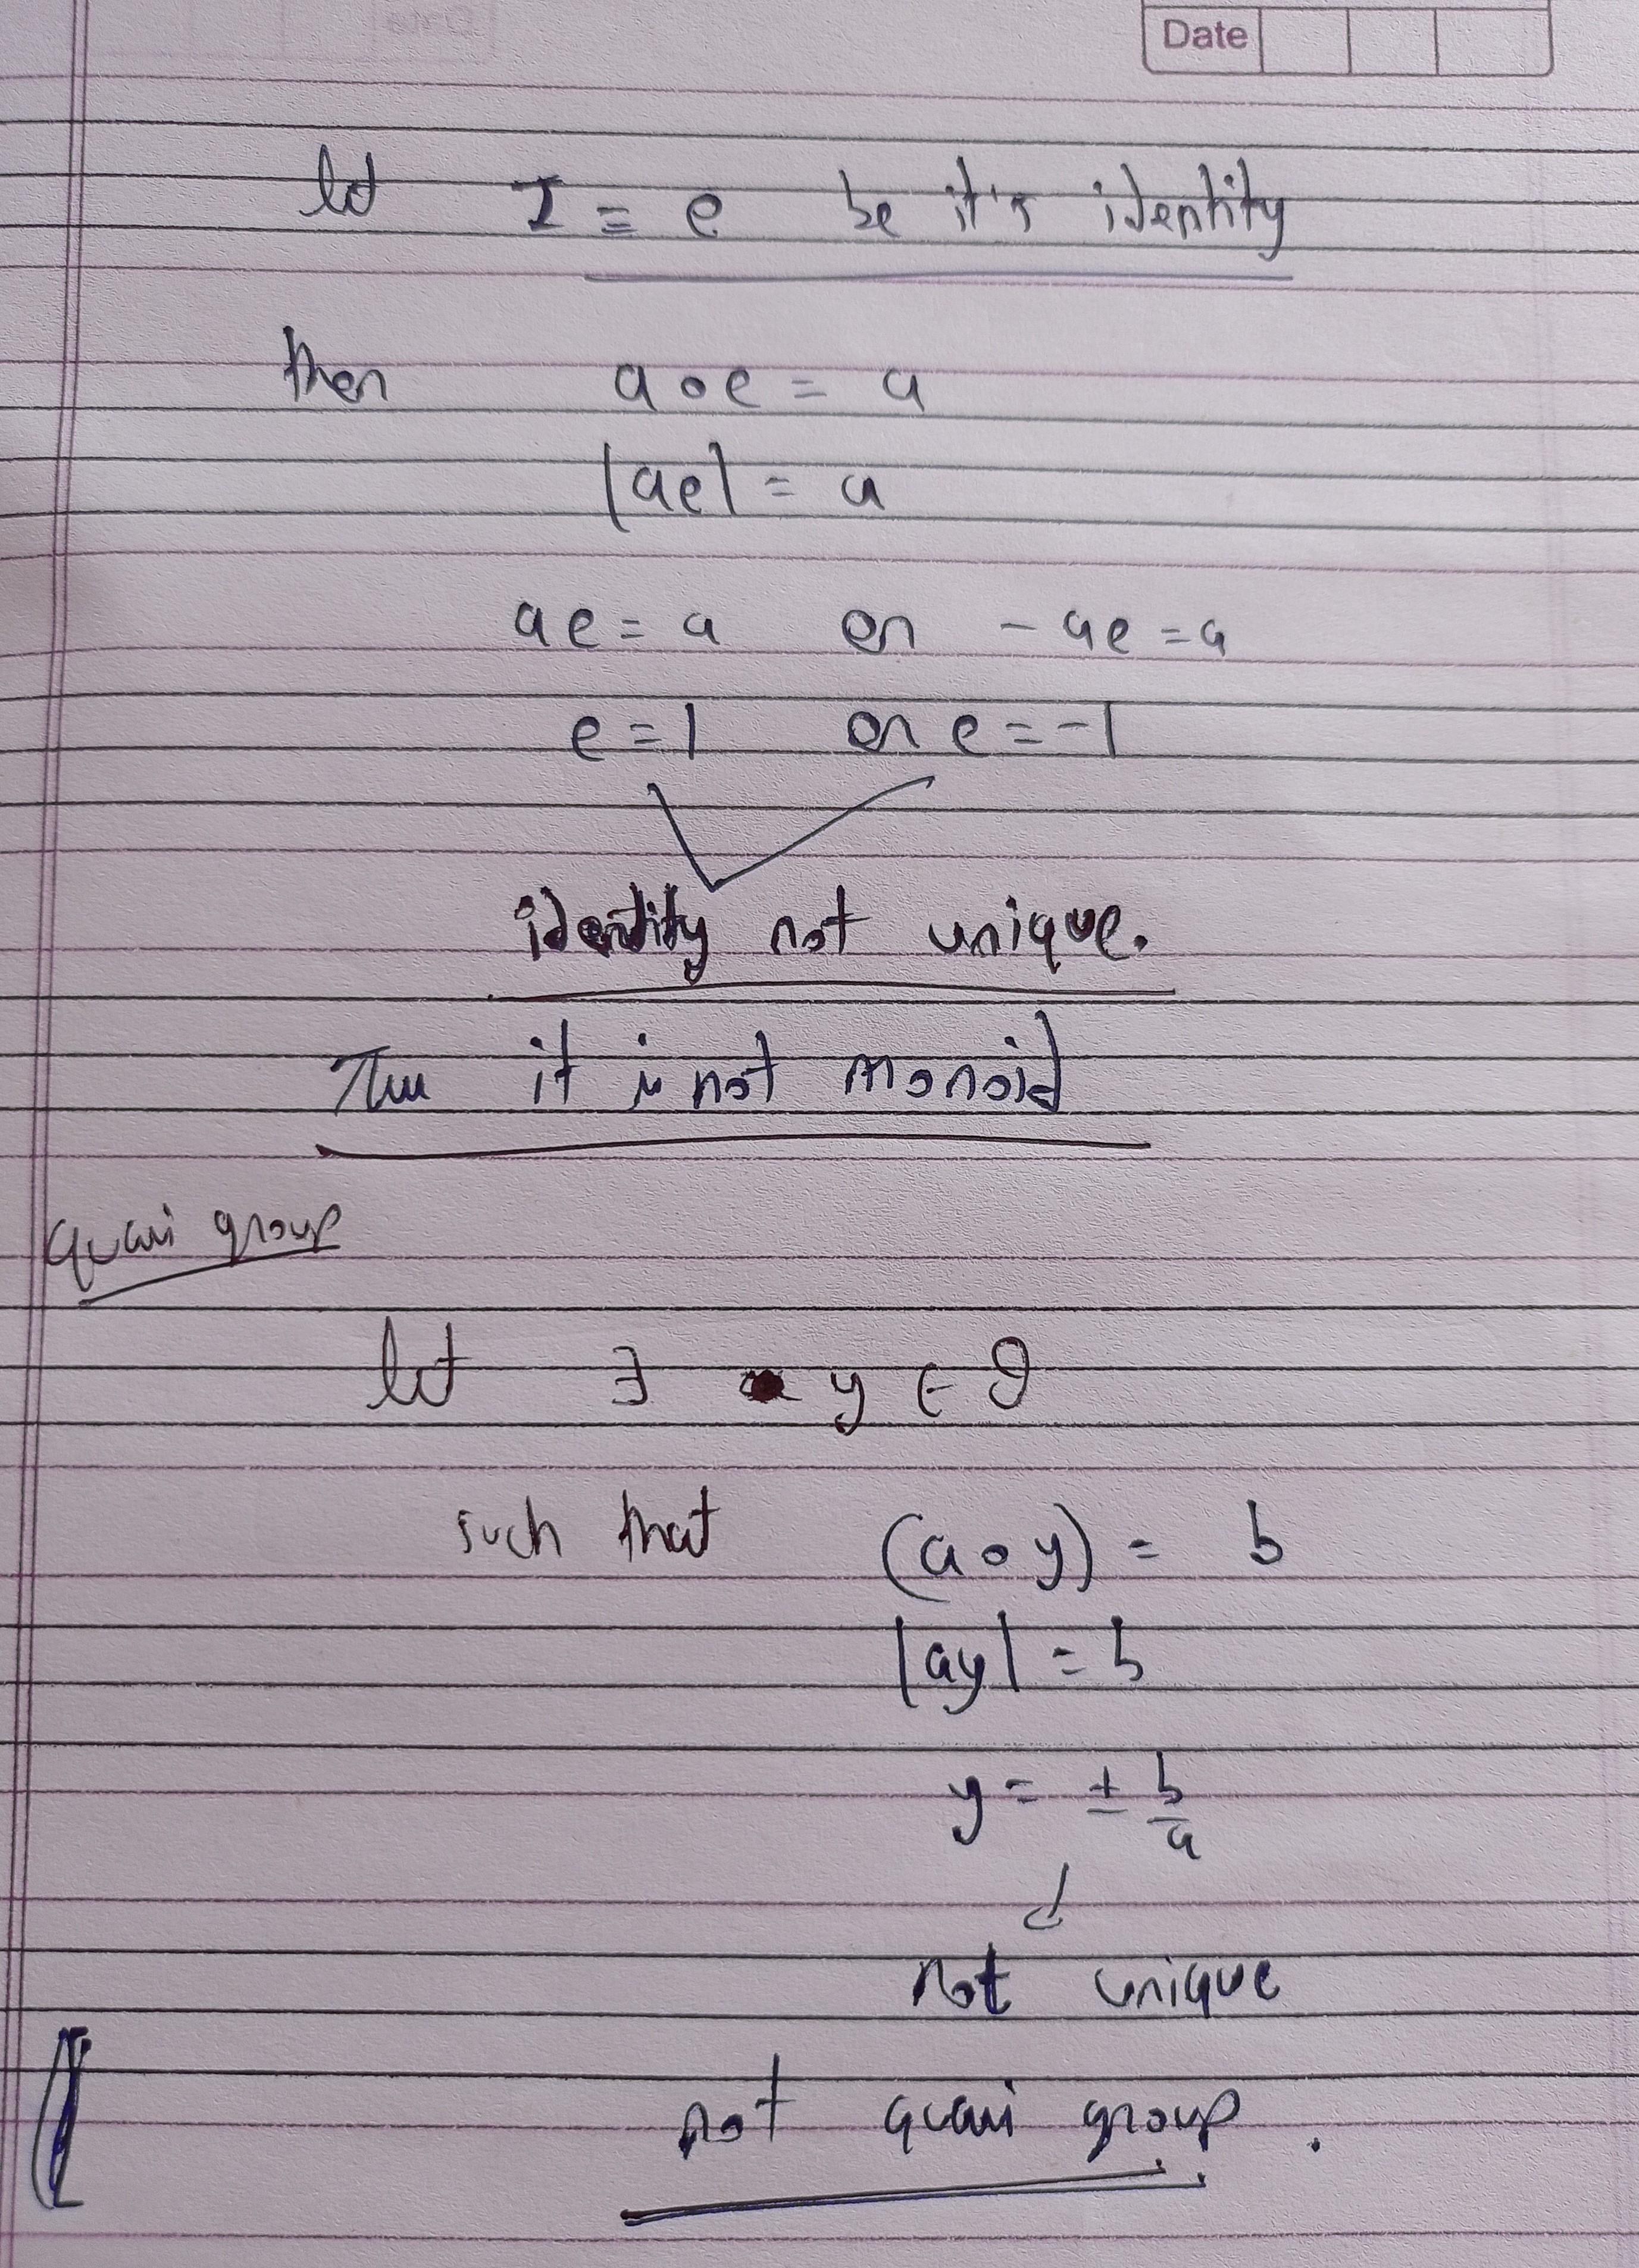 Date
let I = e be it's identity
then a o e = a
|ae| = a
ae = a or - ae = a
e = 1 or e = -1
identity not unique.
Thus it is not monoid
quasi group
let ∃ y ∈
such that (a o y) = b
|ay| = b
y = ± b/a
not unique
not quasi group.